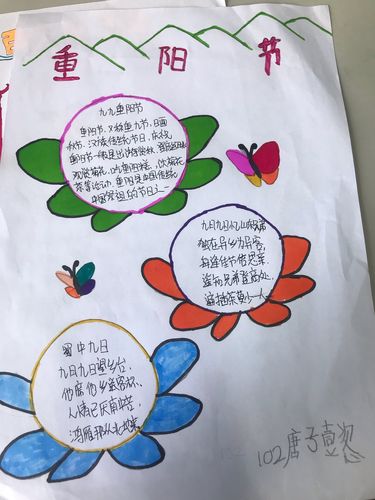 重阳节
九九重阳节
重阳节，又称重九节，日晒
秋节，汉族传统节日，庆祝
重阳节一般是出游赏秋、登高远眺
观赏菊花、吃重阳糕、饮菊花
茶等活动，重阳是中国传统
中国祭祖的节日之一
九月九日忆山东兄弟
独在异乡为异客，
每逢佳节倍思亲。
遥知兄弟登高处，
遍插茱萸少一人
蜀中九日
九月九日望乡台，
他席他乡送客杯。
人情已厌南中苦，
鸿雁那从北地来
102唐子壹